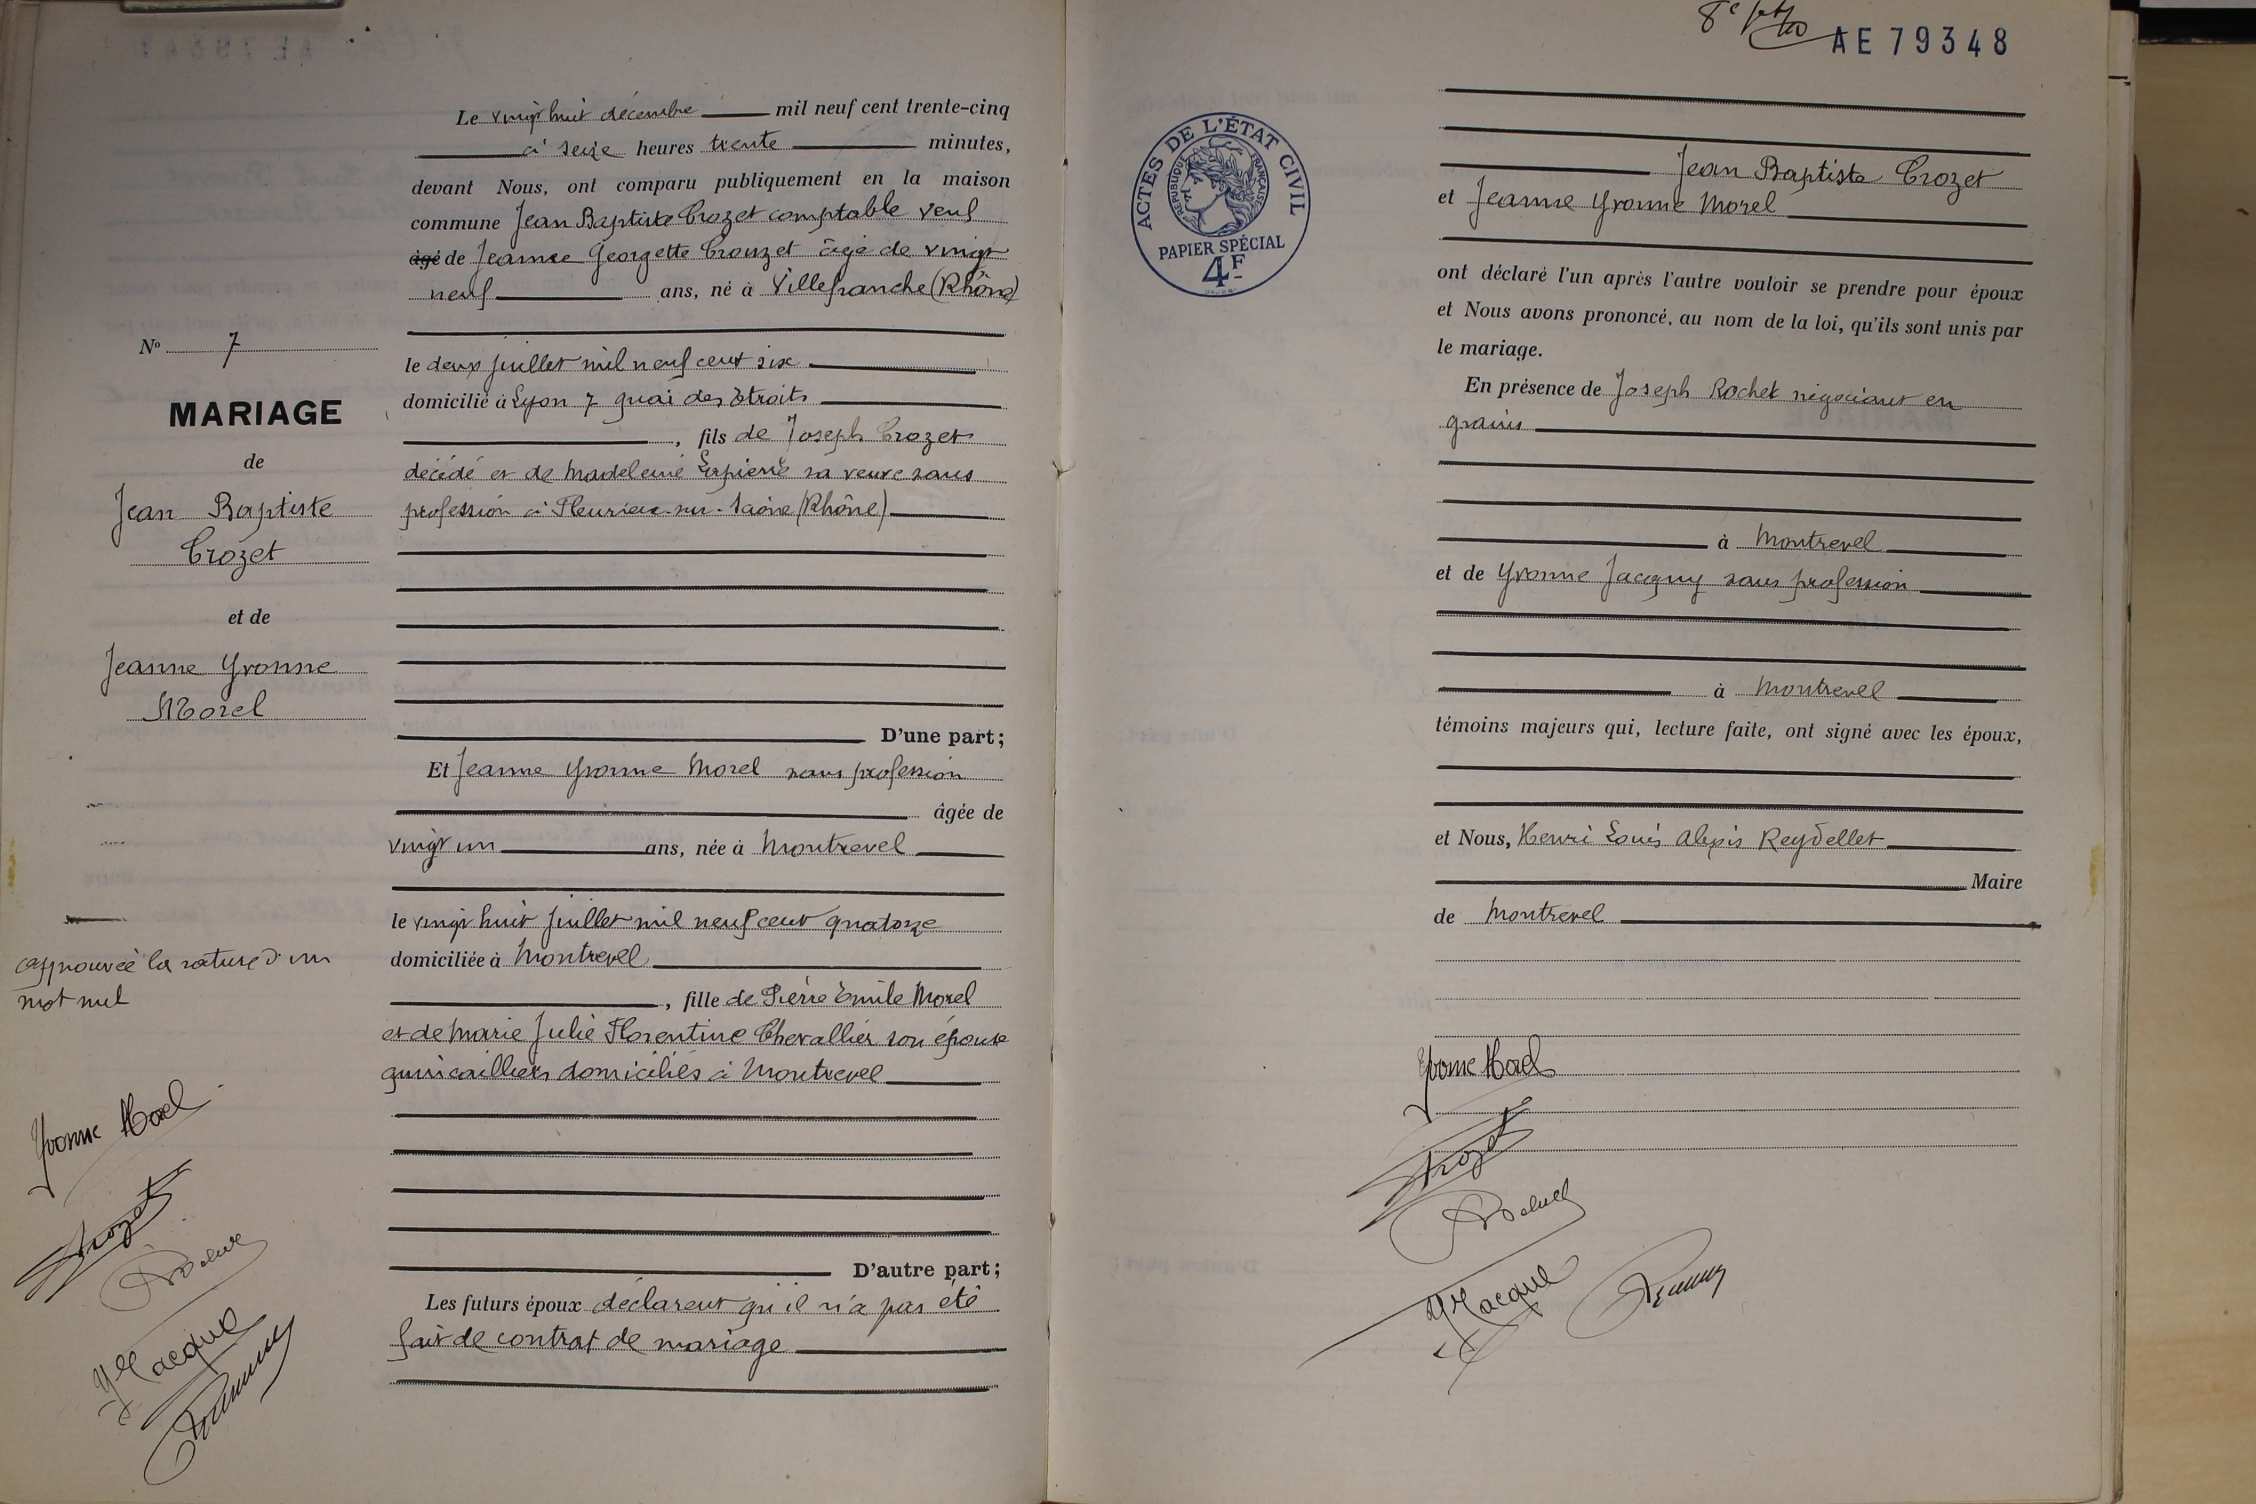 N° 7
MARIAGE
de
Jean Baptiste
Crozet
et de
Jeanne Yvonne
Morel
approuvée la rature d'un
mot nul
Yvonne Morel
Crozet
Le vingt huit décembre mil neuf cent trente-cinq
à seize heures trente minutes,
devant Nous, ont comparu publiquement en la maison
commune Jean Baptiste Crozet comptable veuf
âgé de Jeanne Georgette Crouzet âgé de vingt
neuf ans, né à Villefranche (Rhône)
le deux juillet mil neuf cent six
domicilié à Lyon 7 quai des Etroits
, fils de Joseph Crozet
décédé et de Madeleine Lapierre sa veuve sans
profession à Fleurieu-sur-Saône (Rhône)
D'une part;
Et Jeanne Yvonne Morel sans profession
âgée de
vingt un ans, née à Montrevel
le vingt huit juillet mil neuf cent quatorze
domiciliée à Montrevel
, fille de Pierre Emile Morel
et de Marie Julie Florentine Chevallier son épouse
quincailliers domiciliés à Montrevel
D'autre part;
Les futurs époux déclarent qu'il n'a pas été
fait de contrat de mariage
AE 79348
ACTES DE L'ÉTAT CIVIL
RÉPUBLIQUE FRANÇAISE
PAPIER SPÉCIAL
4F
Jean Baptiste Crozet
et Jeanne Yvonne Morel
ont déclaré l'un après l'autre vouloir se prendre pour époux
et Nous avons prononcé, au nom de la loi, qu'ils sont unis par
le mariage.
En présence de Joseph Rochet négociant en
grains
à Montrevel
et de Yvonne Jacquy sans profession
à Montrevel
témoins majeurs qui, lecture faite, ont signé avec les époux,
et Nous, Henri Louis Alexis Reydellet
Maire
de Montrevel
Yvonne Morel
Crozet